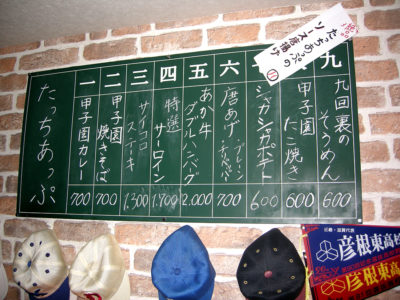 たっちあっぷ
一 甲子園カレー 700
二 甲子園焼きそば 700
三 サイコロステーキ 1,300
四 特選サーロイン 1,900
五 あか牛ダブルハンバーグ 2,000
六 唐あげ プレーン 700
ジャガジャガポテト 600
甲子園たこ焼き 600
九 九回裏のそうめん 600
たっちあっぷの
ソース唐揚げ
彦根東高校
彦根東高